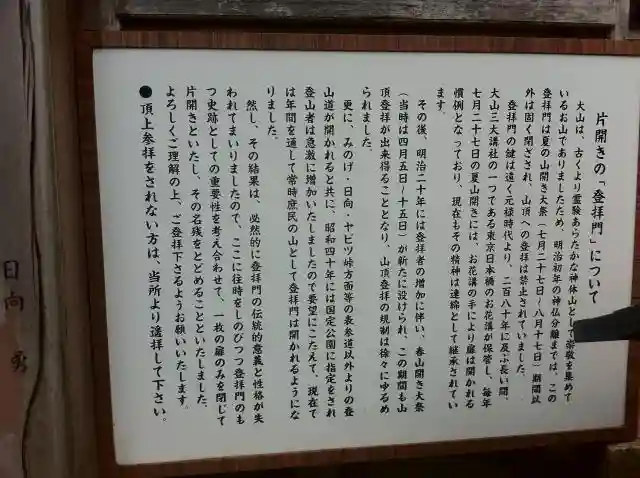 片開きの「登拝門」について
大山は、古くより霊験あらたかな神体山として崇敬を集めて
いるお山でありましたため、明治初年の神仏分離までは、この
登拝門は夏の山開き大祭（七月二十七日〜八月十七日）期間以
外は固く閉ざされ、山頂への登拝は禁止されていました。
登拝門の鍵は遠く元禄時代より、二百八十年に及ぶ長い間、
大山三大講社の一つである東京日本橋のお花講が保管し、毎年
七月二十七日の夏山開きには、お花講の手により扉は開かれる
慣例となっており、現在もその精神は連綿として継承されてい
ます。
その後、明治二十年には登拝者の増加に伴い、春山開き大祭
（当時は四月五日〜十五日）が新たに設けられ、この期間も山
頂登拝が出来得ることとなり、山頂登拝の規制は徐々にゆるめ
られました。
更に、みのげ・日向・ヤビツ峠方面等の表参道以外よりの登
山道が開かれると共に、昭和四十年には国定公園に指定をされ
登山者は急激に増加いたしましたので要望にこたえて、現在で
は年間を通して常時庶民の山として登拝門は開かれるようにな
りました。
然し、その結果は、必然的に登拝門の伝統的意義と性格が失
われてまいりましたので、ここに往時をしのびつつ登拝門のも
つ史跡としての重要性を考え合わせて、一枚の扉のみを閉じて
片開きといたし、その名残をとどめることといたしました。
よろしくご理解の上、ご登拝下さるようお願いいたします。
●頂上参拝をされない方は、当所より遥拝して下さい。
日向